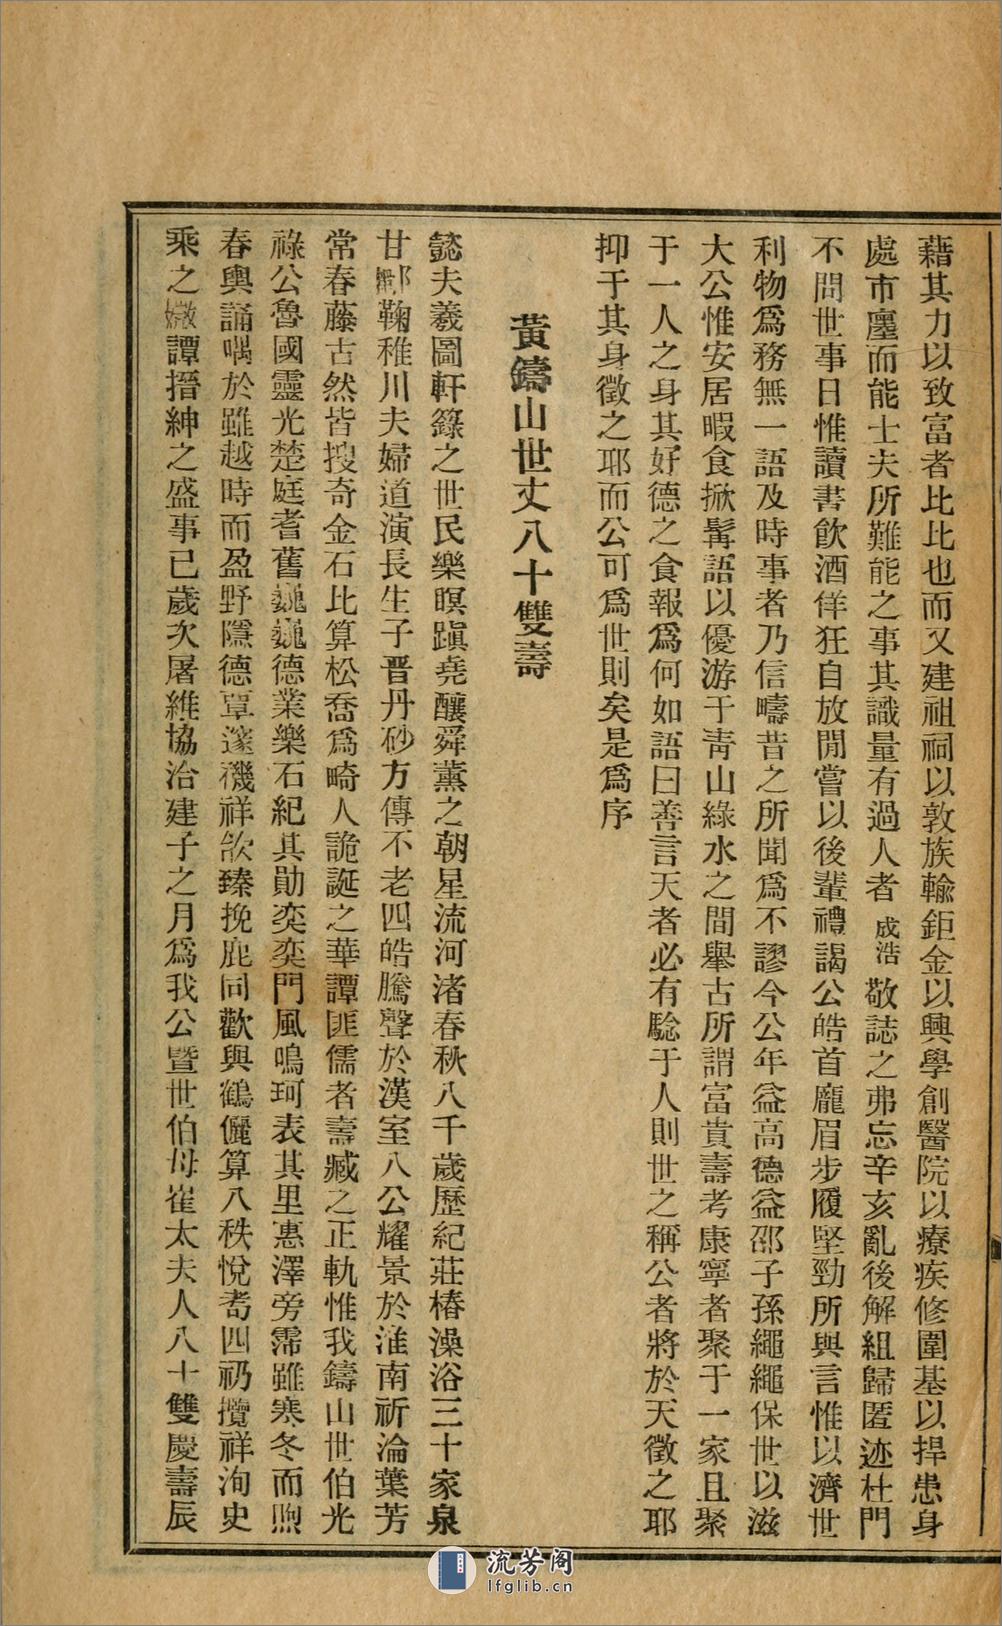 藉其力以致富者比比也而又建祖祠以敦族輸鉅金以興學創醫院以療疾修圍基以捍患身
處市廛而能士夫所難能之事其識量有過人者成浩敬誌之弗忘辛亥亂後解組歸匿迹杜門
不問世事日惟讀書飲酒佯狂自放閒嘗以後輩禮謁公皓首龐眉步履堅勁所與言惟以濟世
利物爲務無一語及時事者乃信疇昔之所聞爲不謬今公年益高德益邵子孫繩繩保世以滋
大公惟安居暇食掀髯語以優游于靑山綠水之間舉古所謂富貴壽考康寧者聚于一家且聚
于一人之身其好德之食報爲何如語曰善言天者必有騐于人則世之稱公者將於天徵之耶
抑于其身徵之耶而公可爲世則矣是爲序
黃鑄山世丈八十雙壽
懿夫羲圖軒籙之世民樂暝蹎堯釀舜薰之朝星流河渚春秋八千歲歷紀莊椿澡浴三十家泉
甘酈鞠稚川夫婦道演長生子晋丹砂方傳不老四皓騰聲於漢室八公耀景於淮南祈淪葉芳
常春藤古然皆搜奇金石比算松喬爲畸人詭誕之華譚匪儒者壽臧之正軌惟我鑄山世伯光
祿公魯國靈光楚庭耆舊巍巍德業樂石紀其勛奕奕門風鳴珂表其里惠澤旁霈雖寒冬而煦
春輿誦喁於雖越時而盈野隱德覃邃禨祥歆臻挽鹿同歡與鶴儷算八秩悅耇四礽攬祥洵史
乘之嬍譚搢紳之盛事已歲次屠維協洽建子之月爲我公暨世伯母崔太夫人八十雙慶壽辰
流芳阁
lfglib.cn